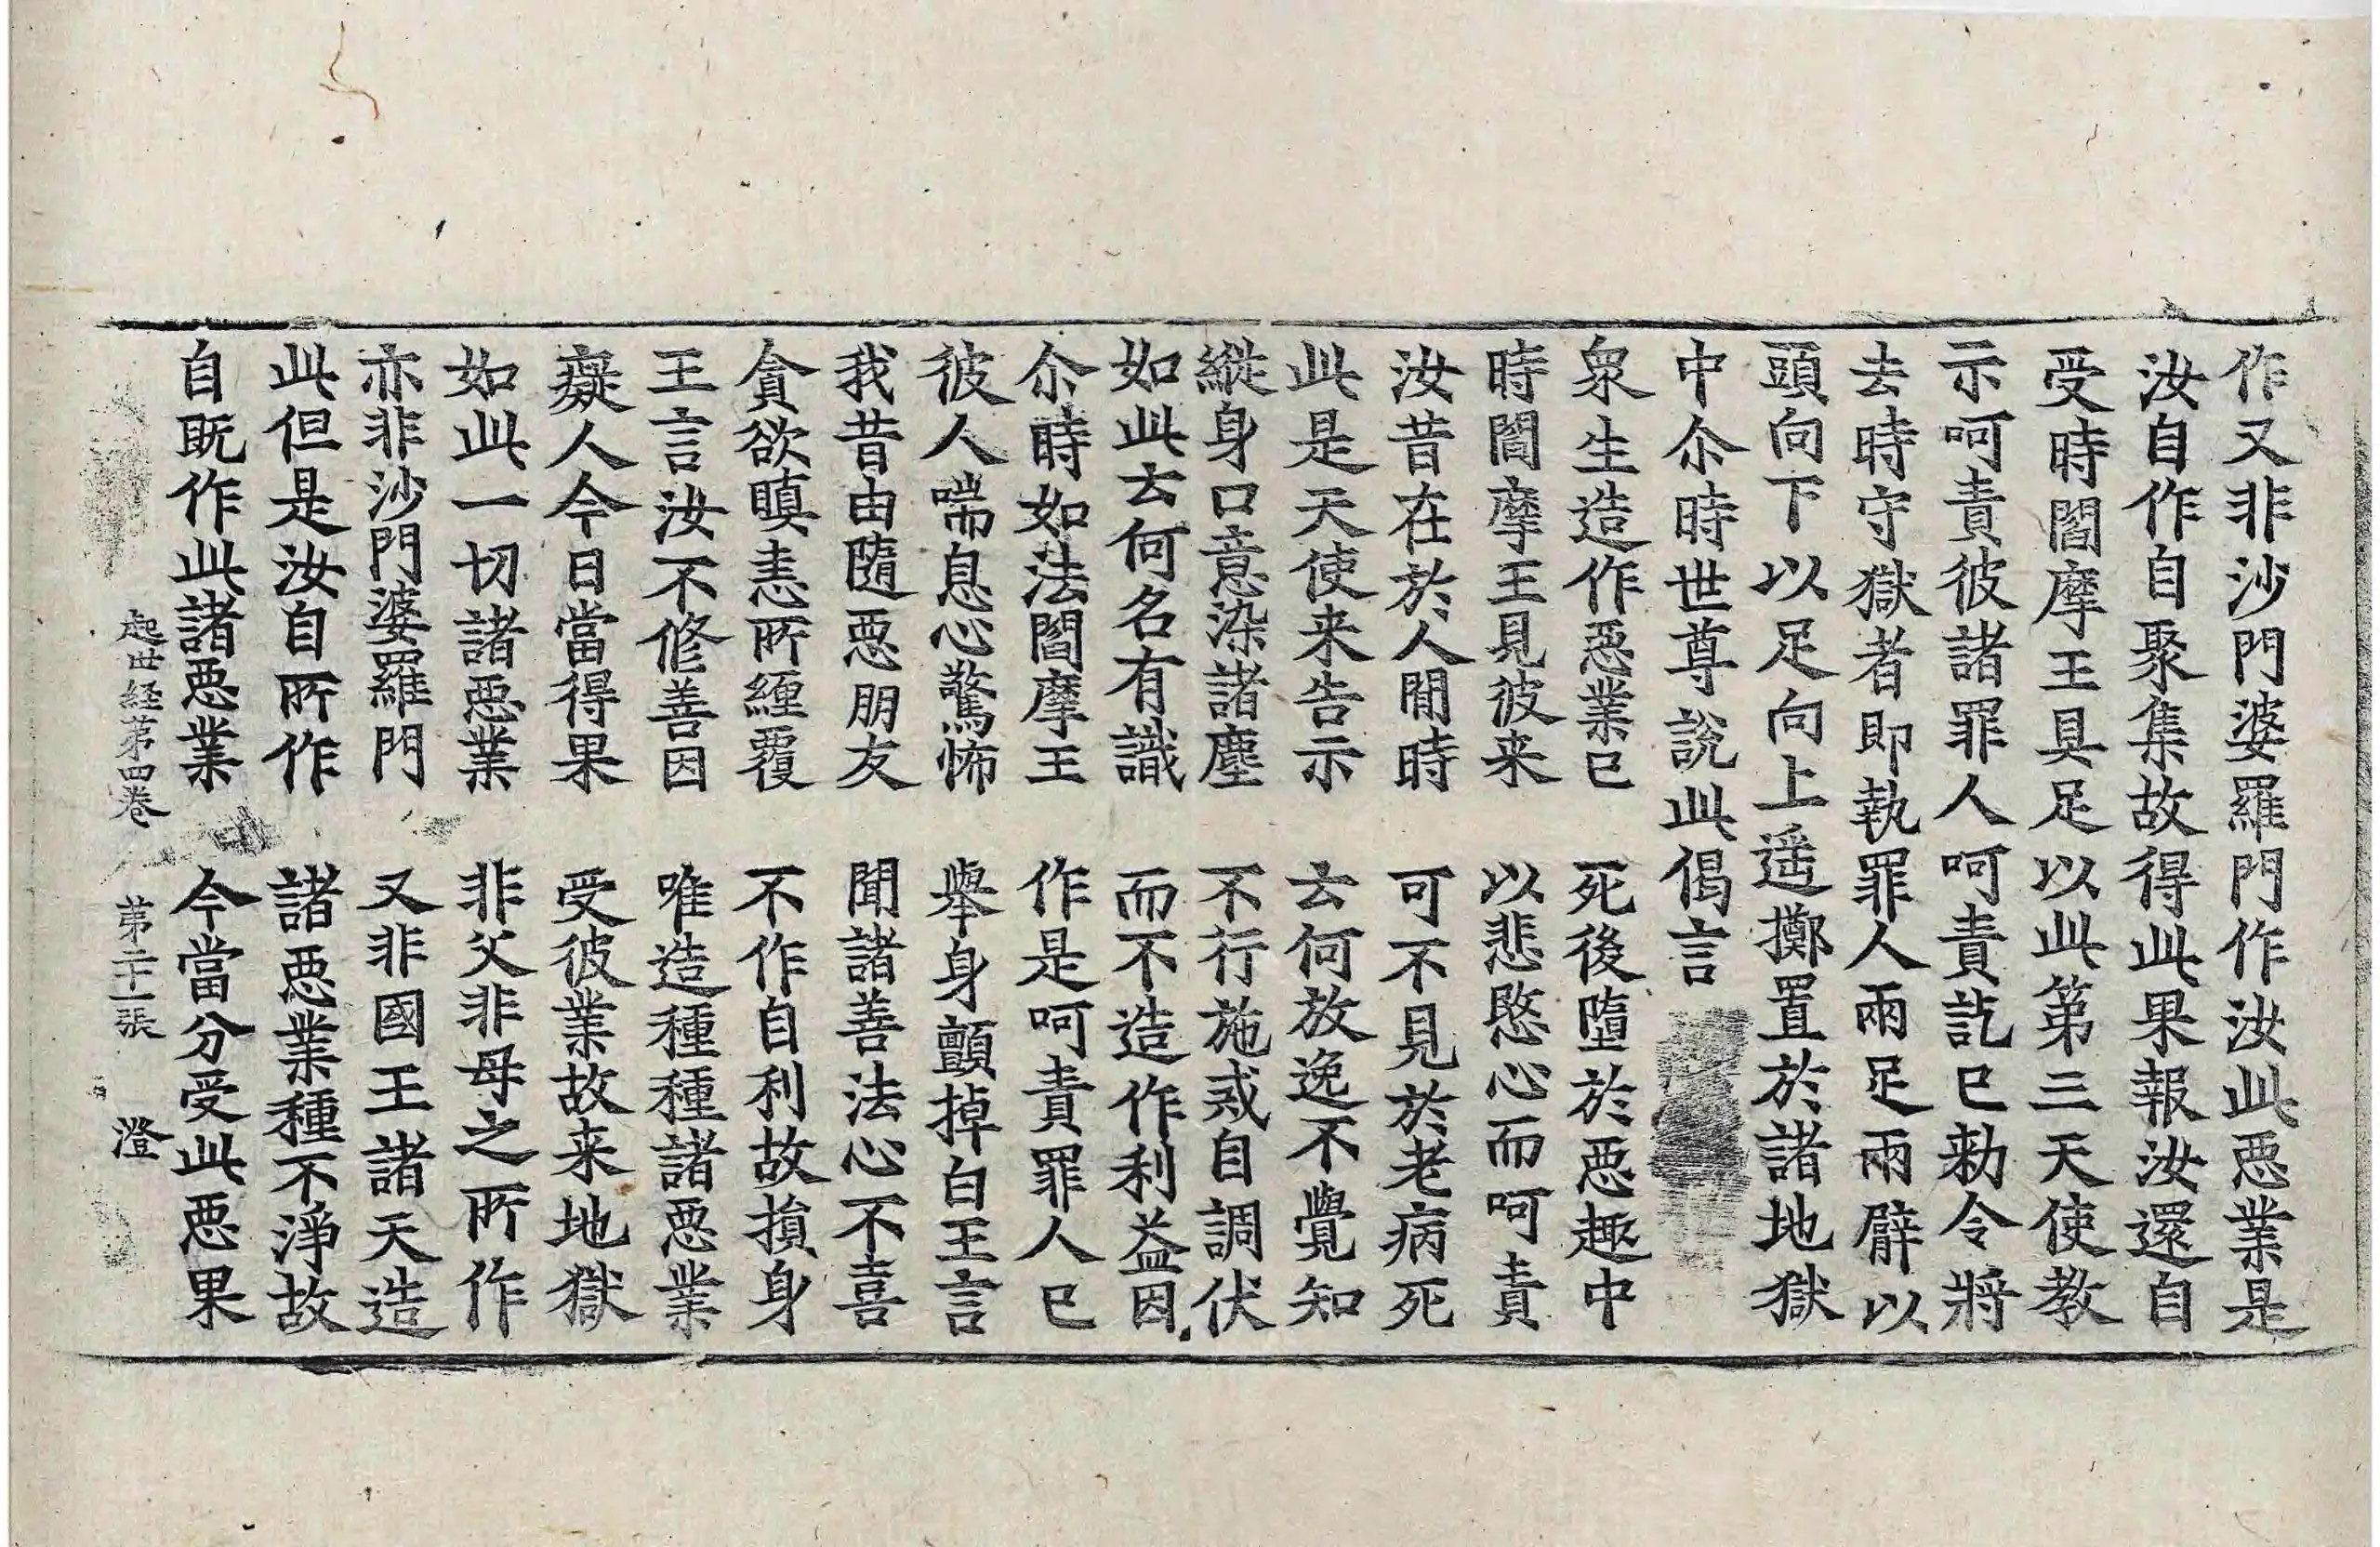 作又非沙門婆羅門作汝此惡業是
汝自作自聚集故得此果報汝還自
受時閻摩王具足以此第三天使教
示呵責彼諸罪人呵責訖已勅令將
去時守獄者即執罪人兩足兩臂以
頭向下以足向上遥擲置於諸地獄
中尒時世尊說此偈言
衆生造作惡業已　死後墮於惡趣中
時閻摩王見彼来　以悲愍心而呵責
汝昔在於人閒時　可不見於老病死
此是天使来告示　云何放逸不覺知
縱身口意染諸塵　不行施戒自調伏
如此云何名有識　而不造作利益因
尒時如法閻摩王　作是呵責罪人已
彼人喘息心驚怖　舉身顫掉白王言
我昔由隨惡朋友　聞諸善法心不喜
貪欲瞋恚所纏覆　不作自利故損身
王言汝不修善因　唯造種種諸惡業
癡人今日當得果　受彼業故来地獄
如此一切諸惡業　非父非母之所作
亦非沙門婆羅門　又非國王諸天造
此但是汝自所作　諸惡業種不淨故
自既作此諸惡業　今當分受此惡果
起世経苐四卷　苐二十一張　澄